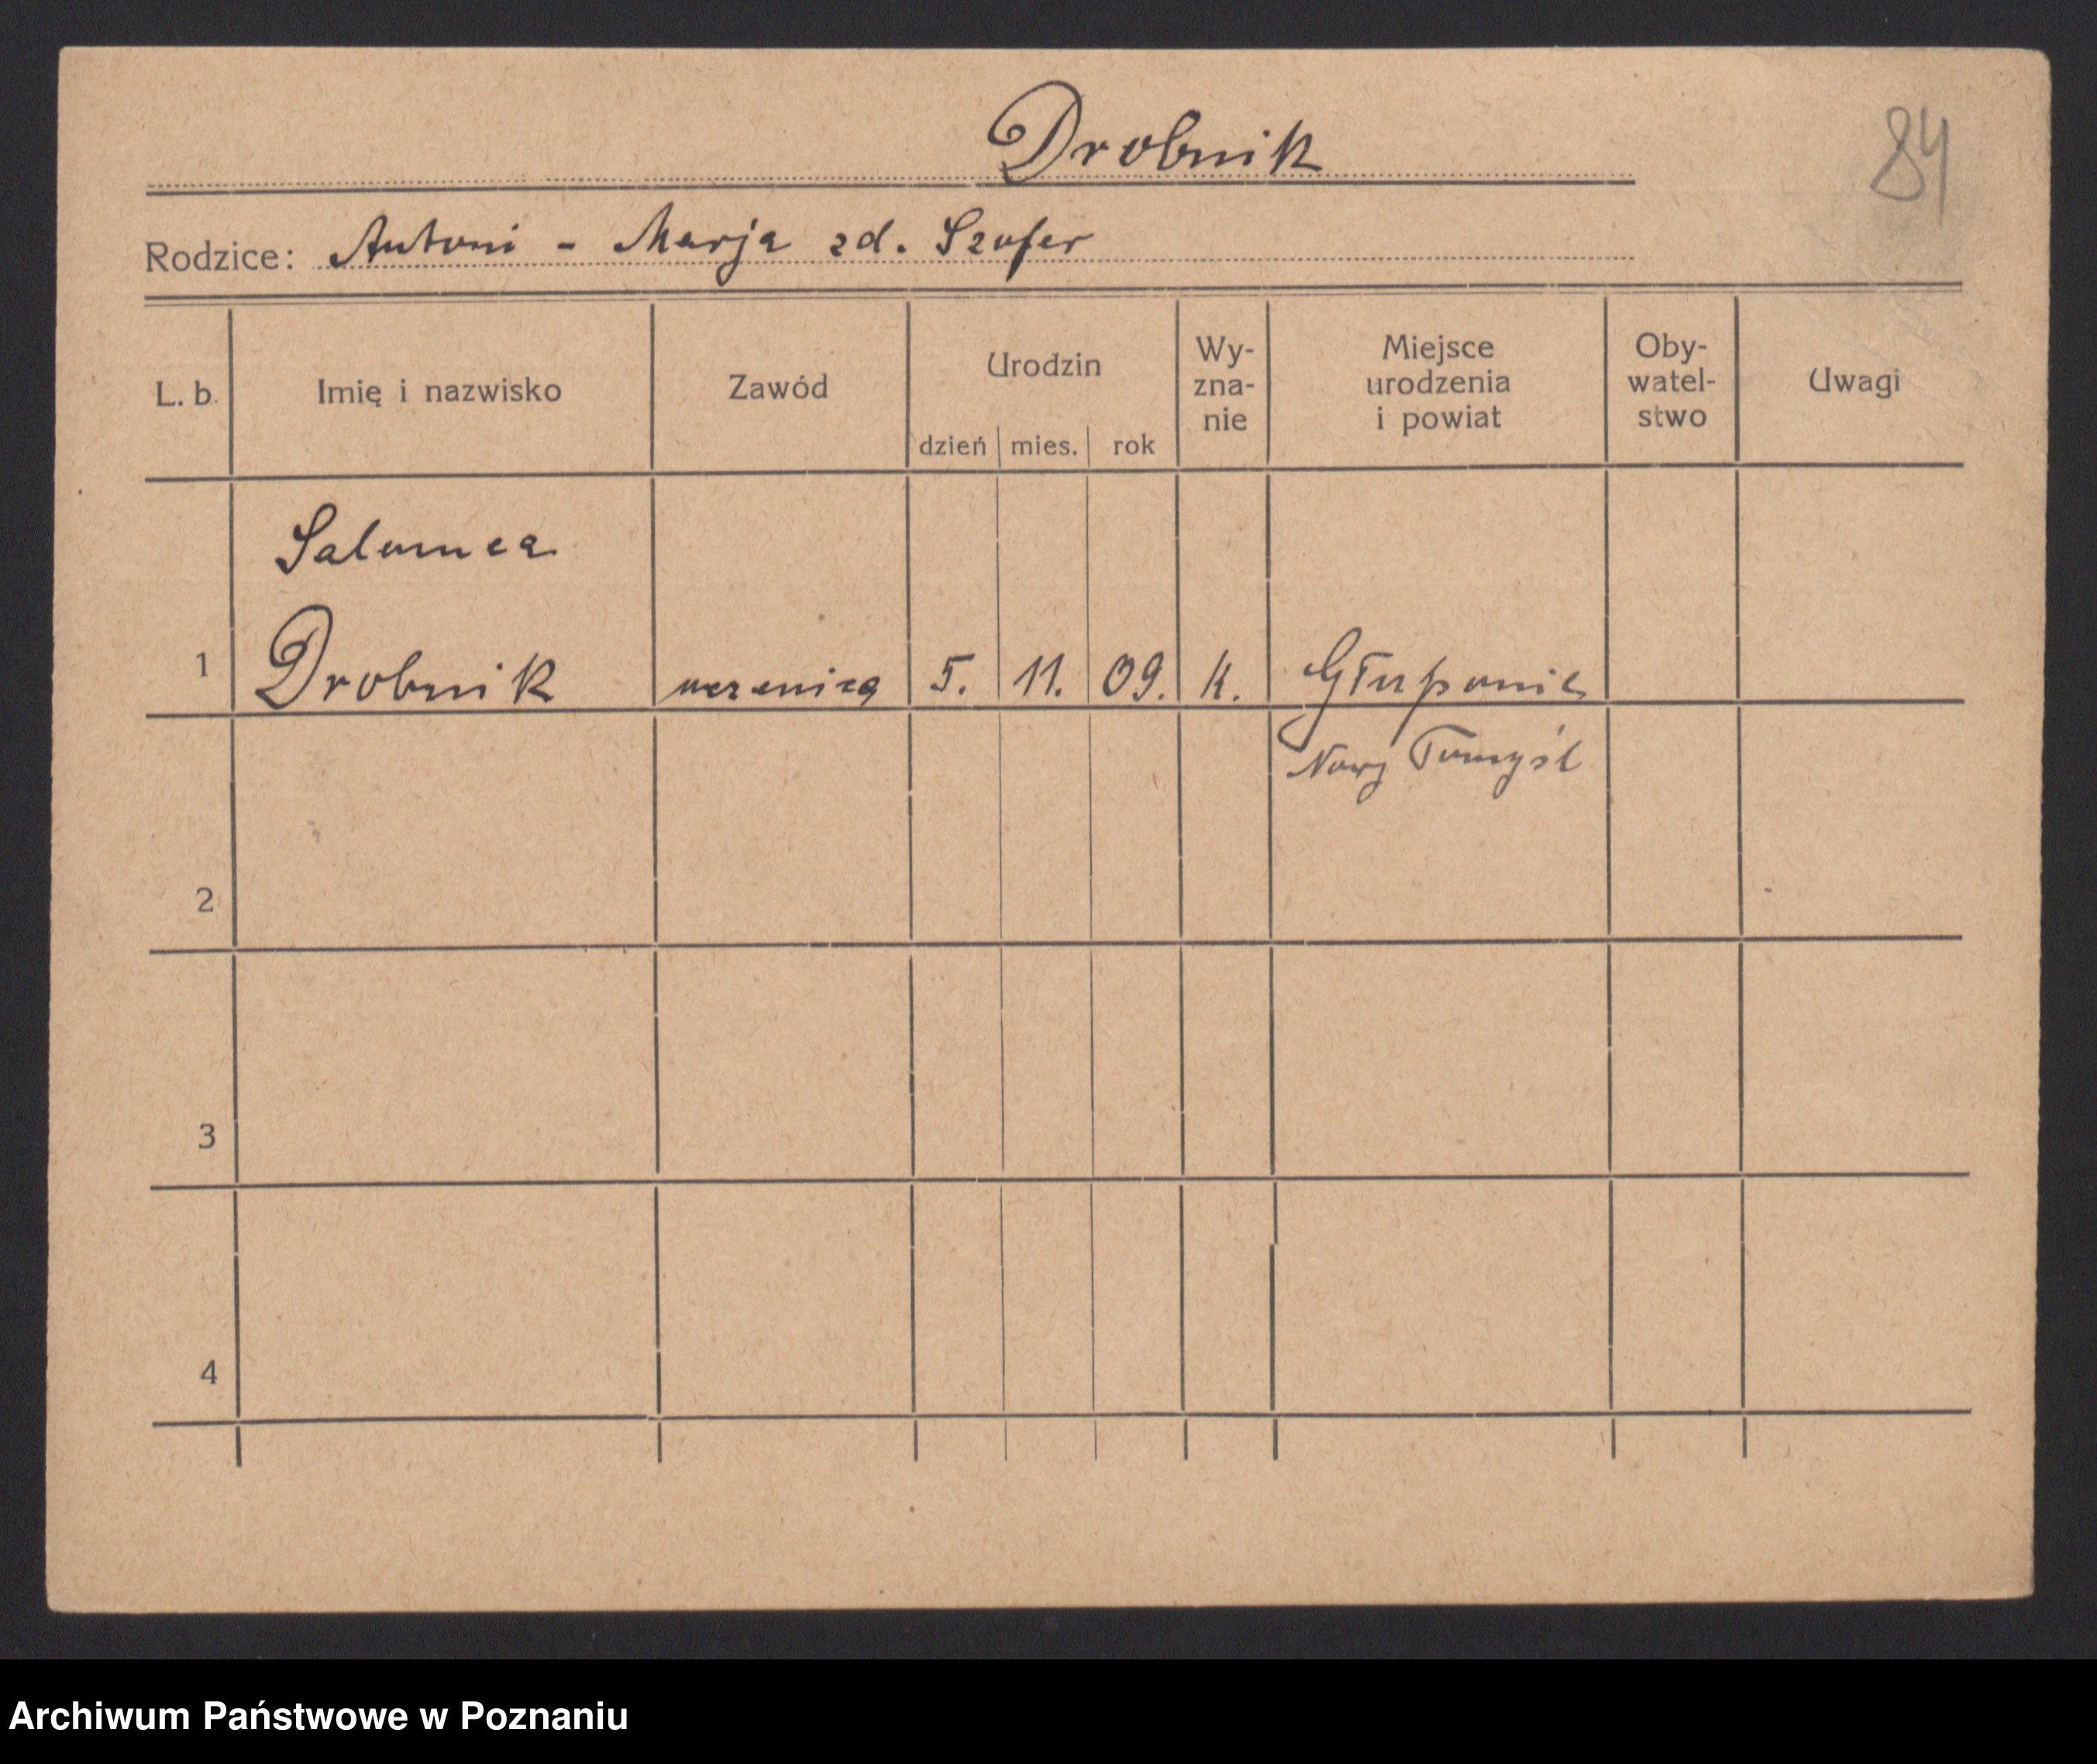 Drobnik
84
Rodzice: Antoni - Marja zd. Szofer
L. b. Imię i nazwisko Zawód Urodzin dzień mies. rok Wy-zna-nie Miejsce urodzenia i powiat Oby-watel-stwo Uwagi
Salomea
1 Drobnik uczenica 5. 11. 09. k. Głuponie
Nowy Tomyśl
2
3
4
Archiwum Państwowe w Poznaniu